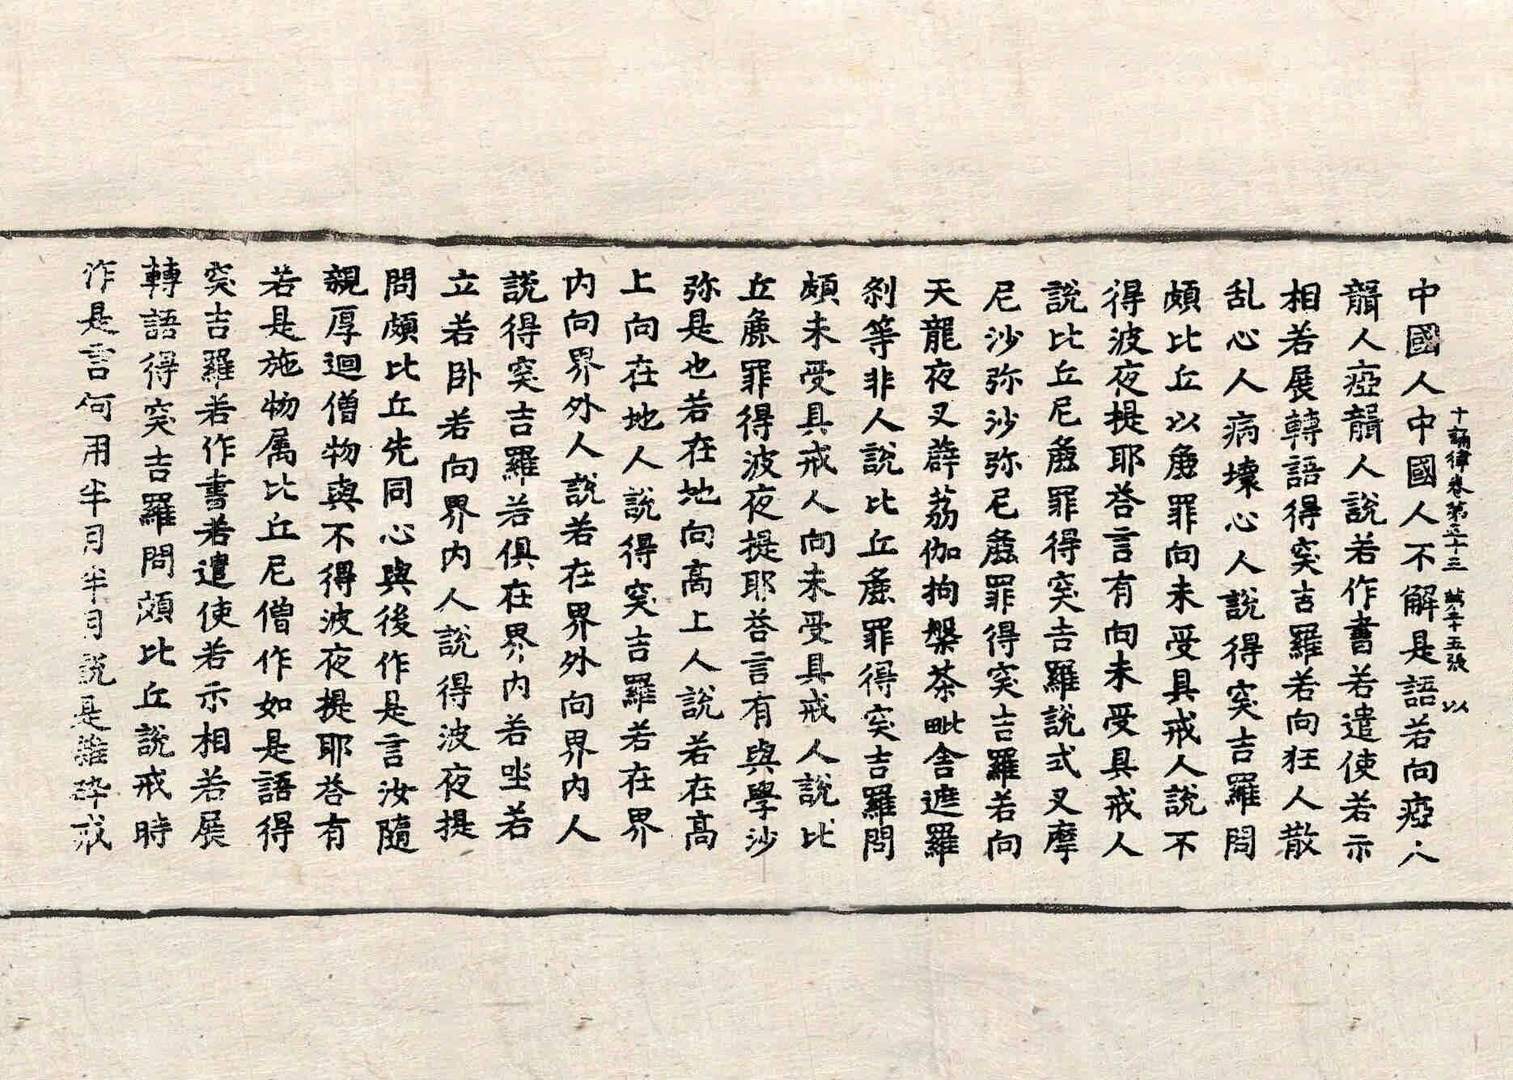 十誦律卷第五十三 第十五張 以
中國人中國人不解是語若向瘂人
聾人瘂聾人說若作書若遣使若示
相若展轉語得突吉羅若向狂人散
乱心人病壞心人說得突吉羅問
頗比丘以麁罪向未受具戒人說不
得波夜提耶荅言有向未受具戒人
說比丘尼麁罪得突吉羅說式叉摩
尼沙弥沙弥尼麁罪得突吉羅若向
天龍夜叉薜荔伽拘槃荼毗舍遮羅
剎等非人說比丘麁罪得突吉羅問
頗未受具戒人向未受具戒人說比
丘麁罪得波夜提耶荅言有與學沙
弥是也若在地向高上人說若在高
上向在地人說得突吉羅若在界
內向界外人說若在界外向界內人
說得突吉羅若俱在界內若坐若
立若卧若向界內人說得波夜提
問頗比丘先同心與後作是言汝隨
親厚迴僧物與不得波夜提耶荅有
若是施物属比丘尼僧作如是語得
突吉羅若作書若遣使若示相若展
轉語得突吉羅問頗比丘說戒時
作是言何用半月半月說是雜碎戒